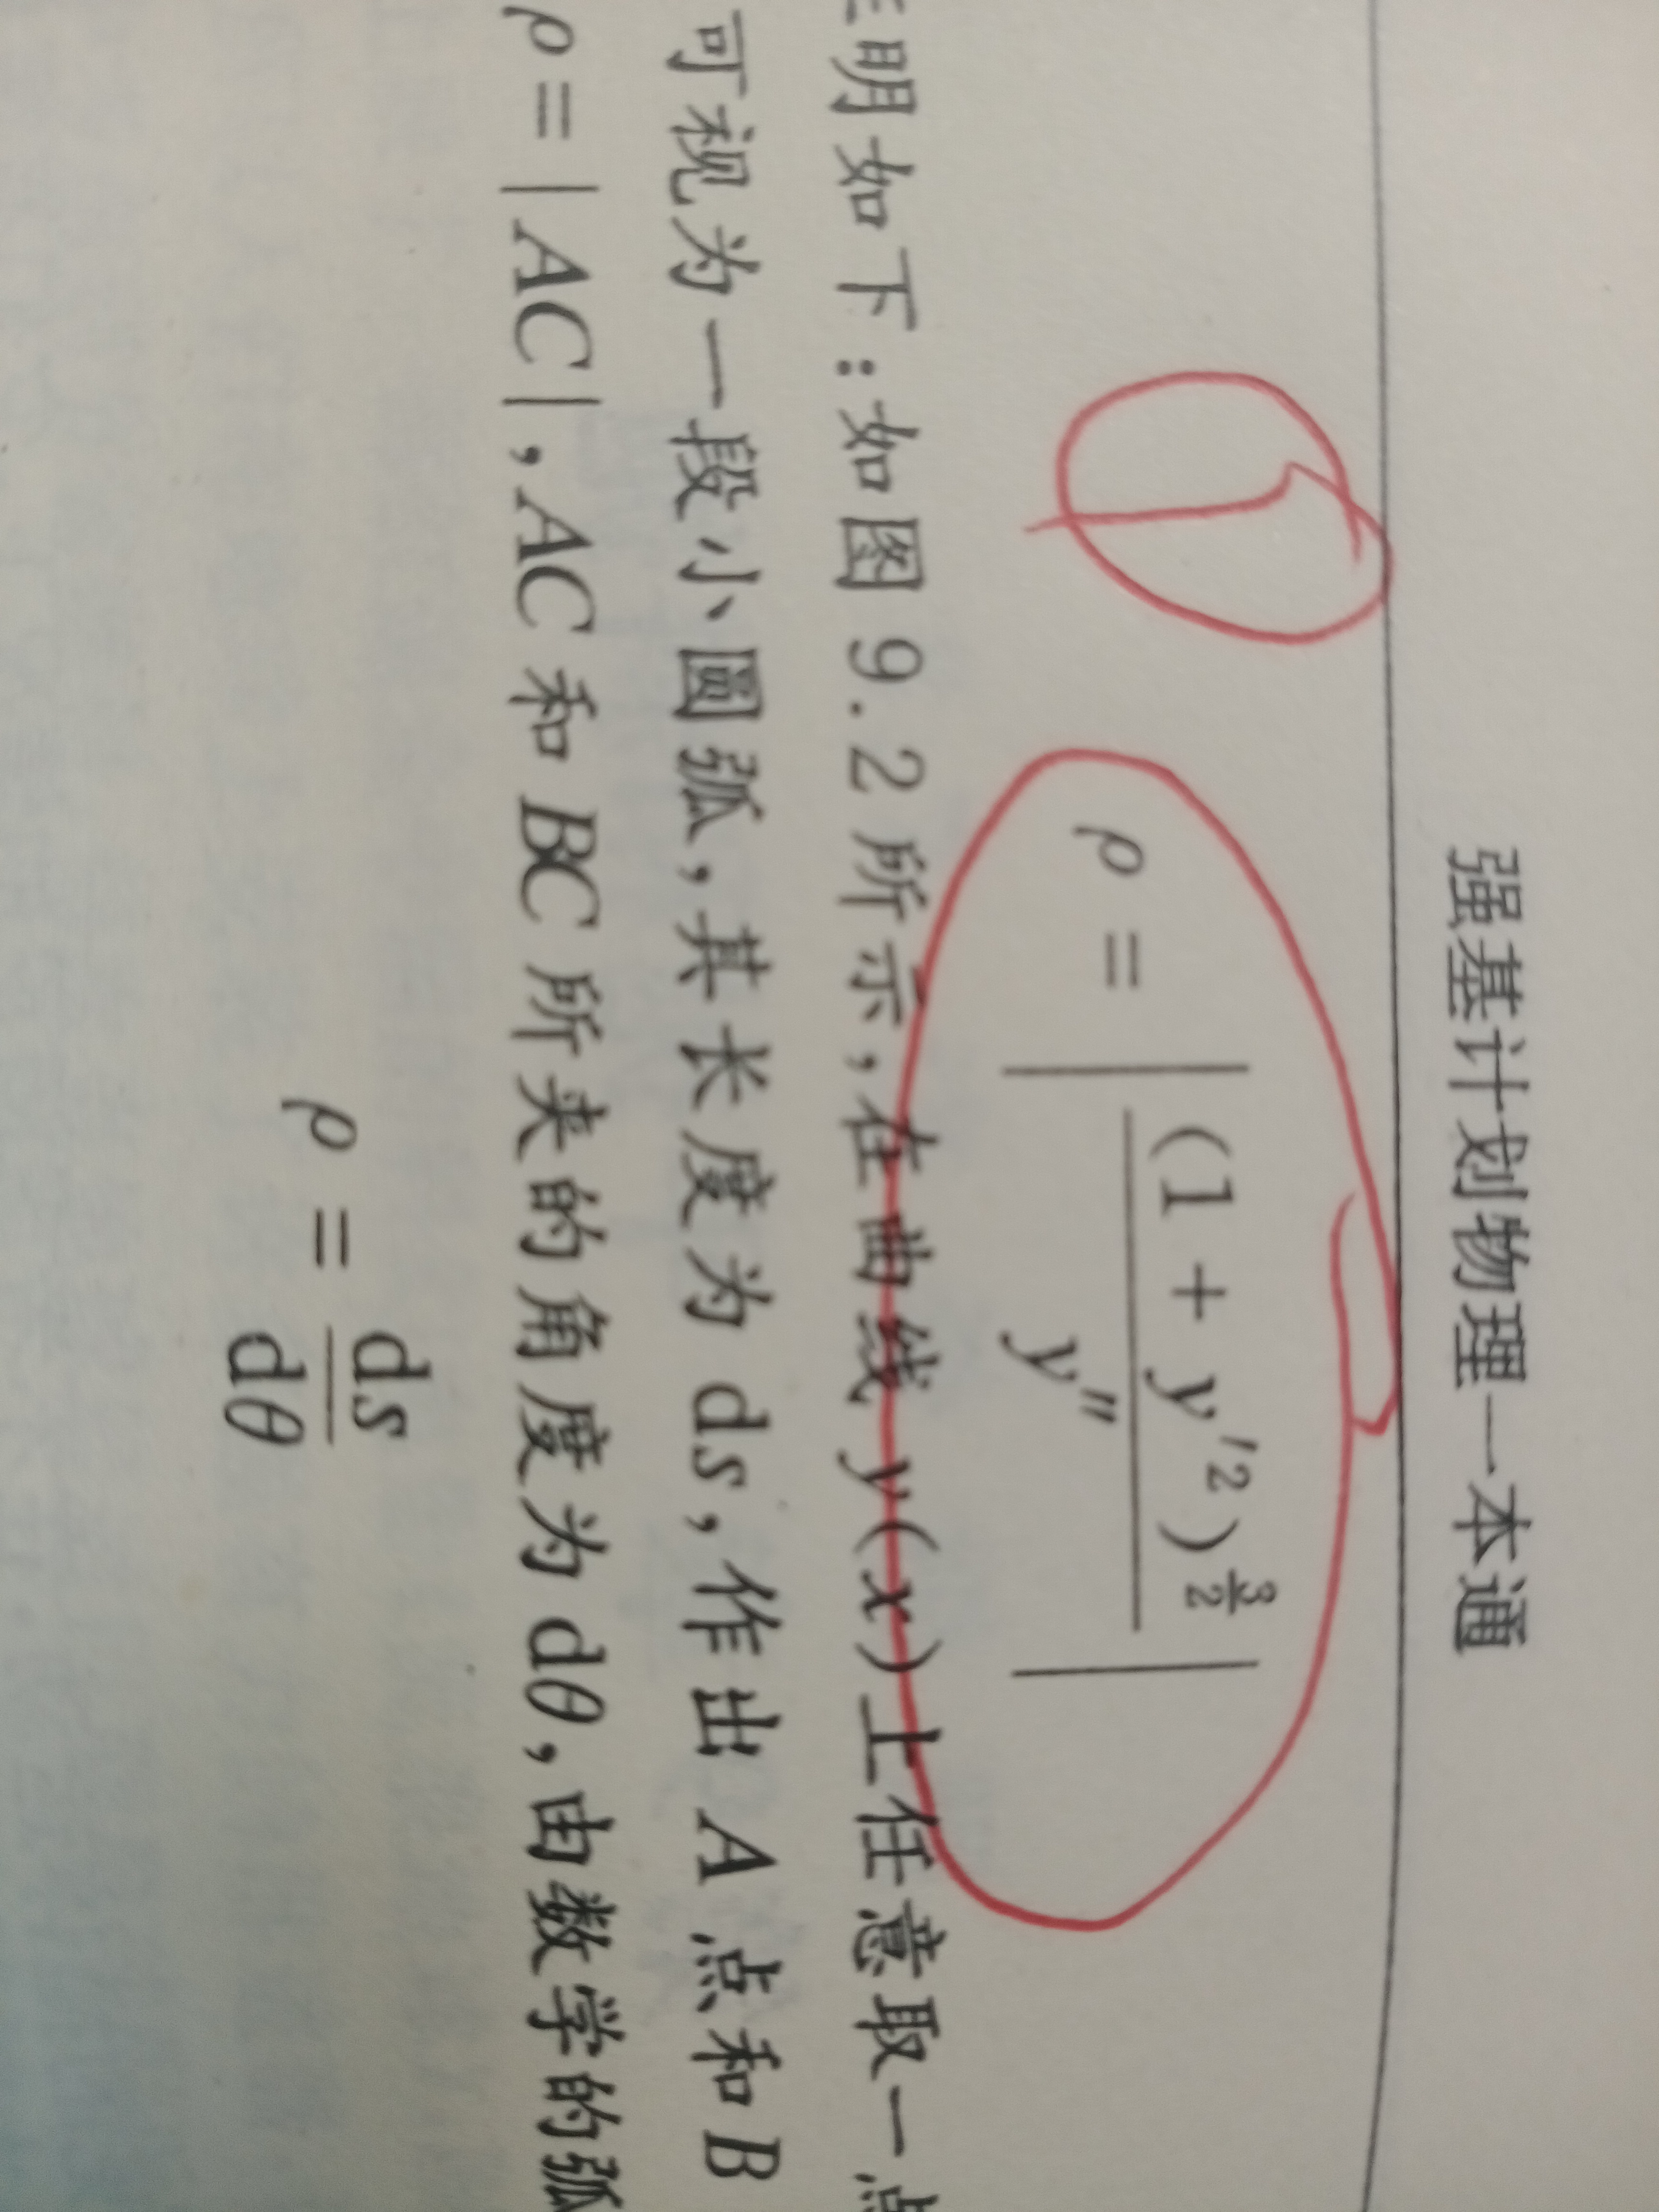 强基计划物理一本通
①
ρ = | (1 + y′²)^{3/2} / y″ |
明如下：如图 9.2 所示，在曲线 y(x)上任意取一点
可视为一段小圆弧，其长度为 ds，作出 A 点和 B
ρ = |AC|，AC 和 BC 所夹的角度为 dθ，由数学的弧
ρ = ds/dθ